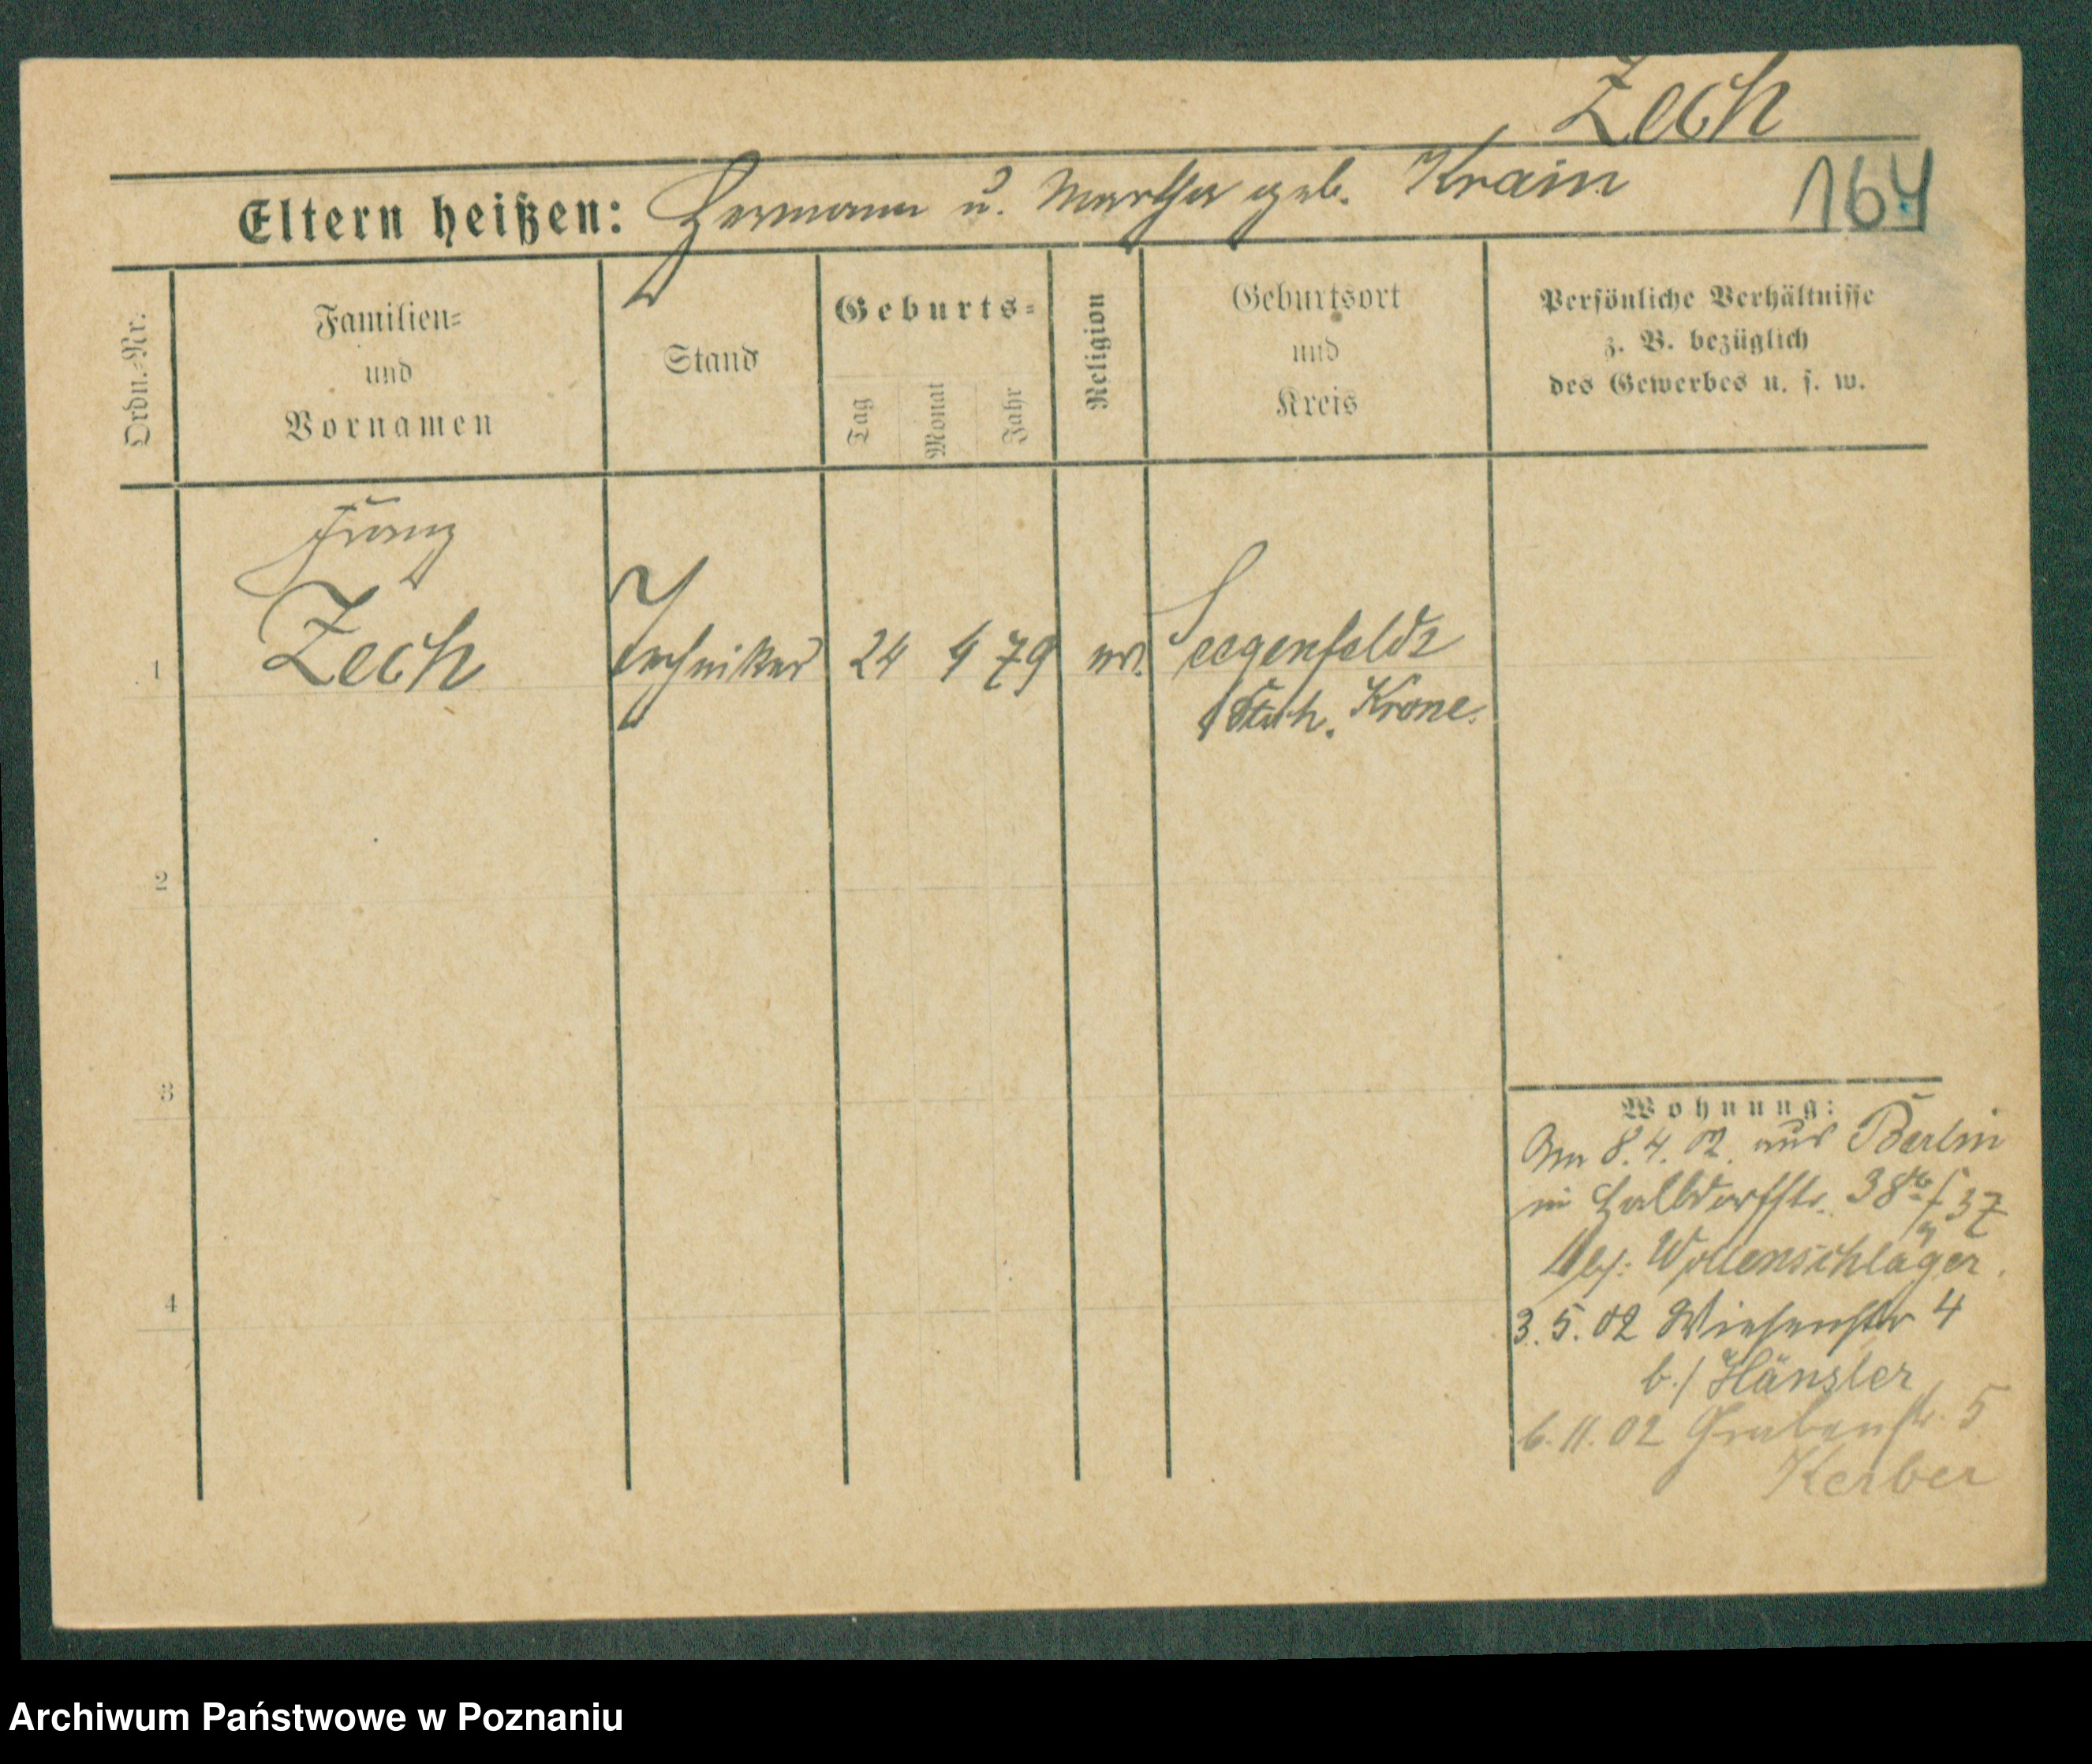 Zech
164
Eltern heißen: Hermann u. Martha geb. Krain
Ordn.-Nr.
Familien-
und
Vornamen
Stand
Geburts-
Tag
Monat
Jahr
Religion
Geburtsort
und
Kreis
Persönliche Verhältnisse
z. B. bezüglich
des Gewerbes u. s. w.
Franz
1 Zech Techniker 24 4 79 Seegenfelde
Krone.
2
3
4
Wohnung:
8.4.02. aus Berlin
in Halbdorfstr. 38 37
b/: Wollenschläger.
3.5.02 Wiesenstr 4
b./ Hänsler
6.11.02 Grabenstr. 5
Kerber
Archiwum Państwowe w Poznaniu